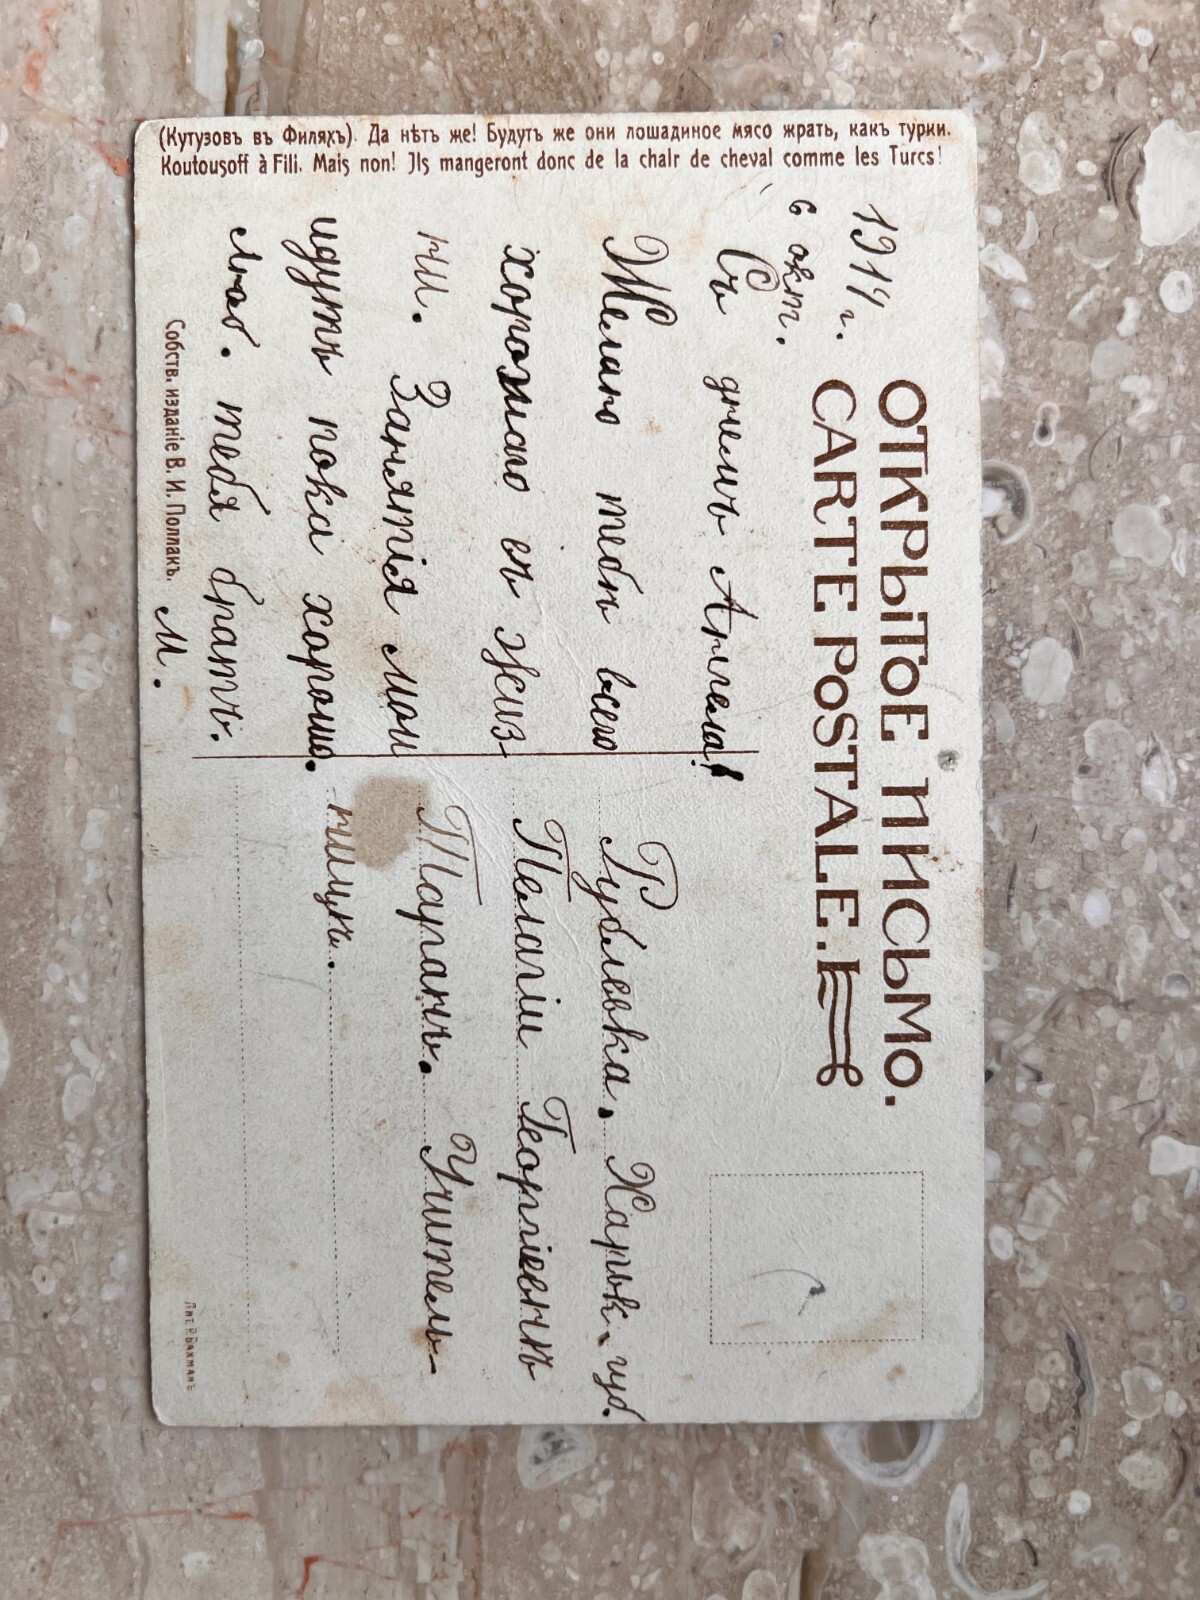 (Кутузовъ въ Филяхъ). Да нѣтъ же! Будутъ же они лошадиное мясо жрать, какъ турки.
Koutousoff à Fili. Mais non! Ils mangeront donc de la chair de cheval comme les Turcs!
ОТКРЫТОЕ ПИСЬМО.
CARTE POSTALE.
1914 г.
6 окт.
Съ днемъ Ангела!
Желаю тебѣ всего
хорошаго въ жиз
ни. Занятія мои
идутъ пока хорошо.
Люб. тебя братъ.
М.
Рублевка. Харьк. губ.
Пелагіи Георгіевнѣ
Таранъ. Учитель-
ницѣ.
Собств. изданіе В. И. Поллакъ.
Лит. Р. Бахманъ